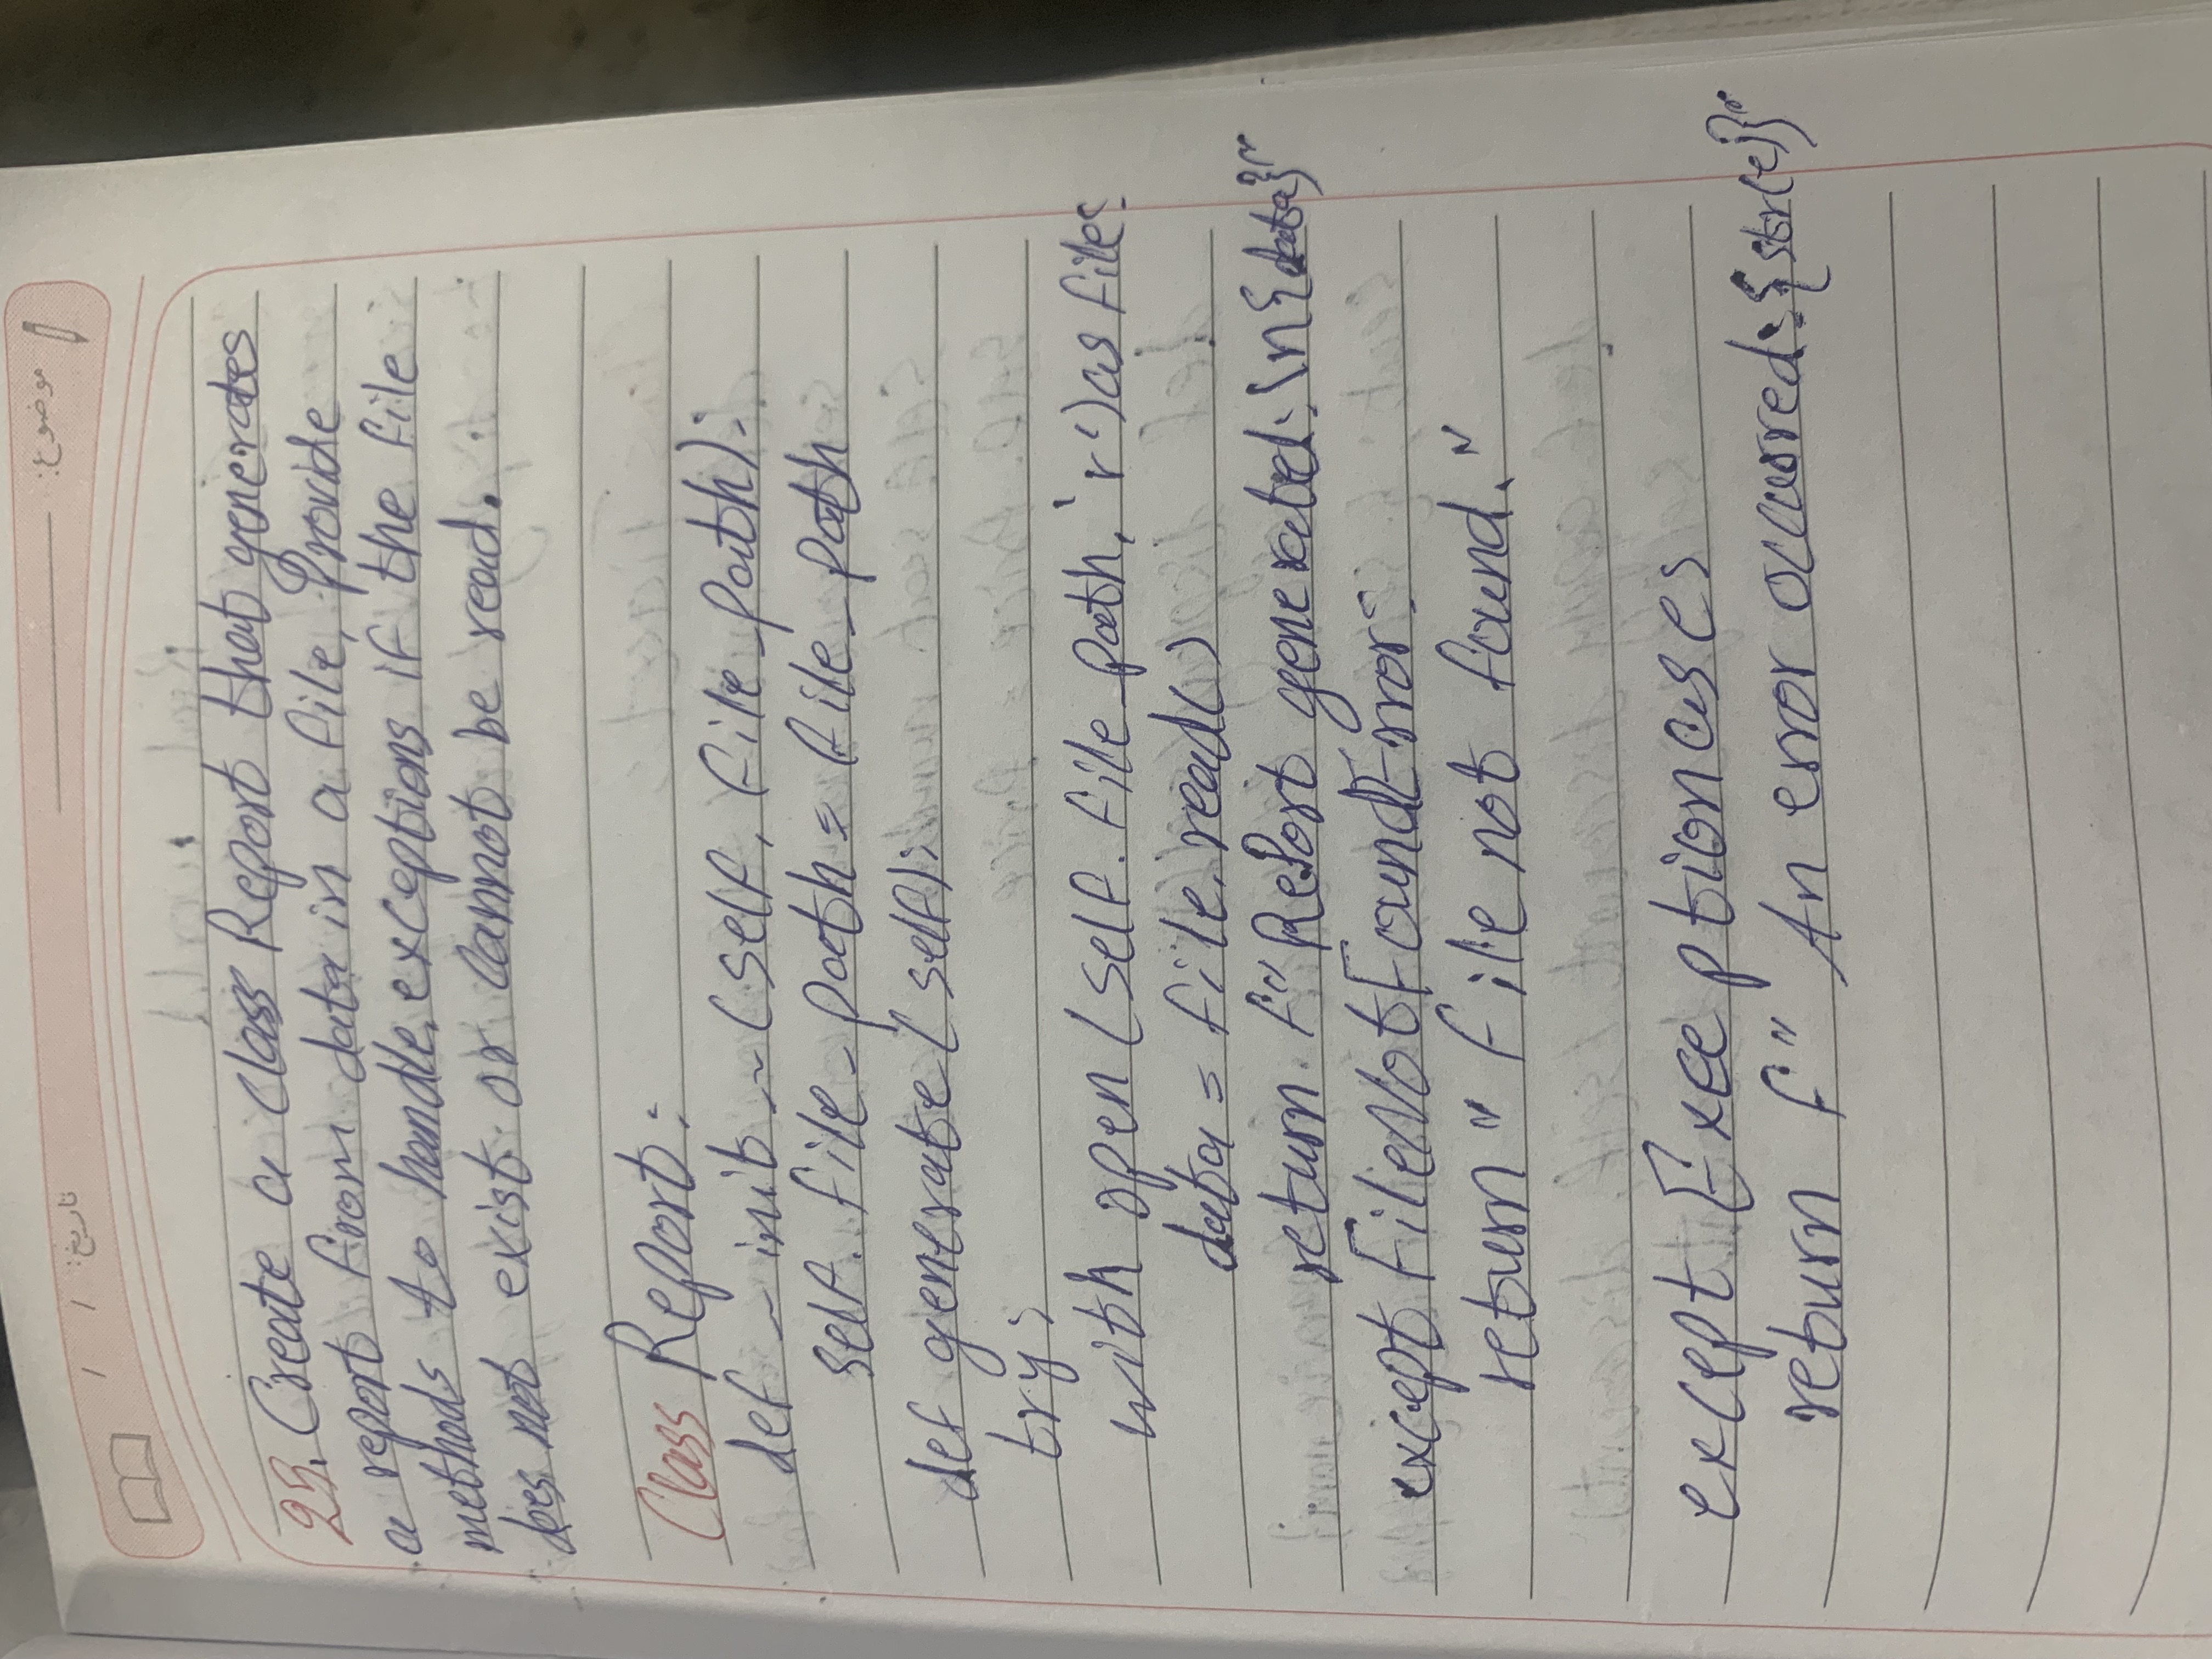 موضوع:
تاریخ: / /
25. Create a class Report that generates
a report from data in a file, Provide
methods to handle exceptions if the file
does not exist or cannot be read.
Class Report:
def __init__(self, file_path):
self.file_path = file_path
def generate(self):
try:
with open(self.file_path, 'r') as file:
data = file.read()
return f"Report generated: \n{data}"
except FileNotFoundError:
return "file not found."
except Exceeptioncases
return f" An error occurred: {str(e)}"